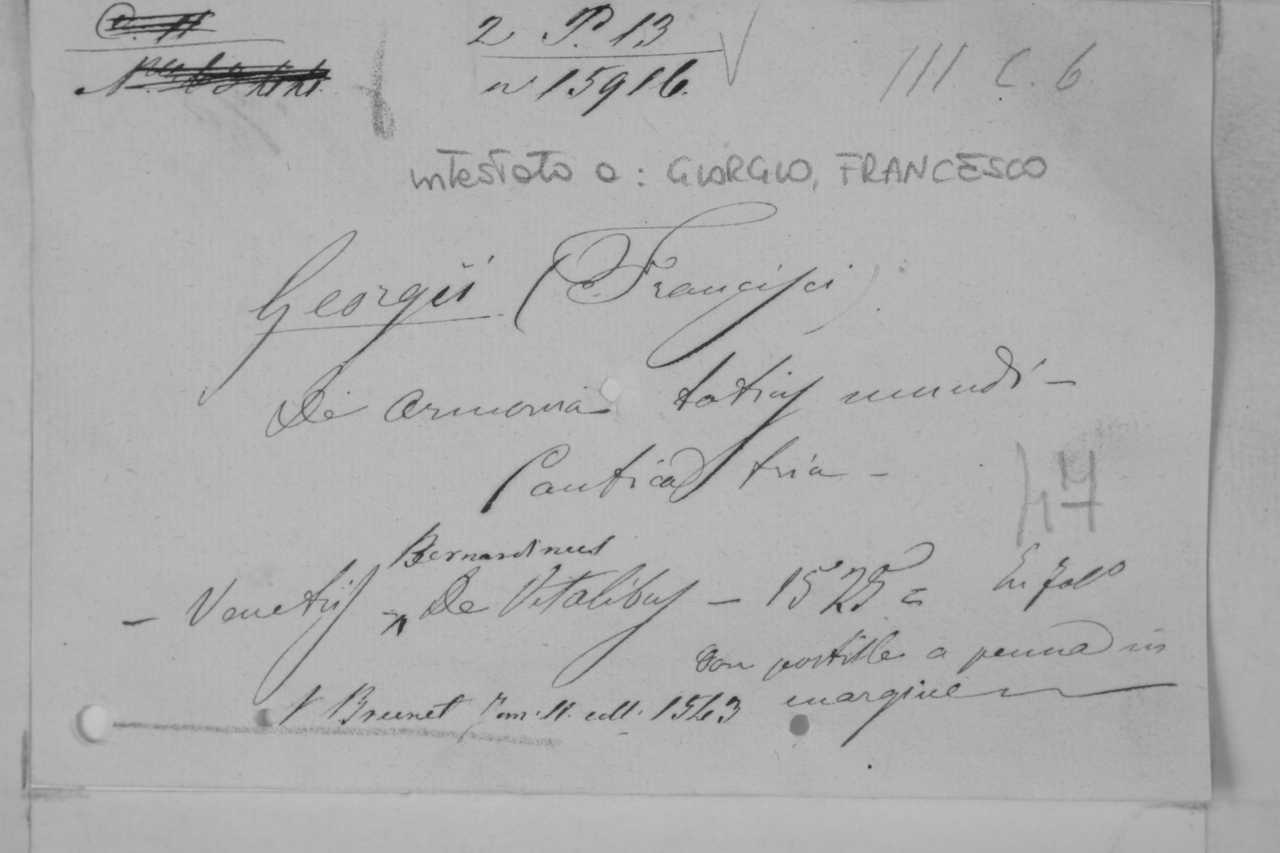 2 P. 13
n° 15916.
III C. 6
intestato a: GIORGIO, FRANCESCO
Georgii (Francisci)
De armonia totius mundi -
Cantica tria -
47
Bernardinus
- Venetiis - De Vitalibus - 1525 = In fol°
con postille a penna in
margine
V Brunet Tom. II. col. 1543